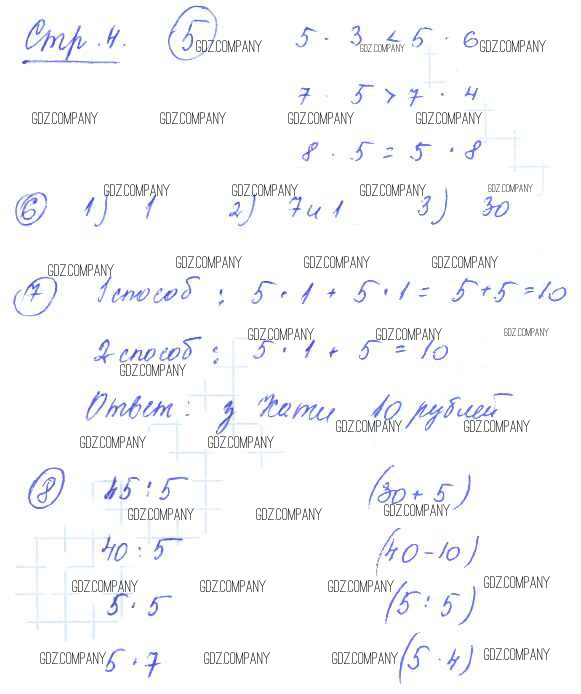 Стр. 4. 5 5 · 3 < 5 · 6
GDZ.COMPANY GDZ.COMPANY GDZ.COMPANY
7 · 5 > 7 · 4
GDZ.COMPANY GDZ.COMPANY GDZ.COMPANY GDZ.COMPANY
8 · 5 = 5 · 8
GDZ.COMPANY GDZ.COMPANY GDZ.COMPANY GDZ.COMPANY
6 1) 1 2) 7 и 1 3) 30
GDZ.COMPANY GDZ.COMPANY GDZ.COMPANY GDZ.COMPANY
7 1 способ : 5 · 1 + 5 · 1 = 5 + 5 = 10
GDZ.COMPANY GDZ.COMPANY GDZ.COMPANY
2 способ : 5 · 1 + 5 = 10
GDZ.COMPANY
Ответ : у Кати 10 рублей
GDZ.COMPANY GDZ.COMPANY
GDZ.COMPANY GDZ.COMPANY
8 45 : 5 (30 + 5)
GDZ.COMPANY GDZ.COMPANY GDZ.COMPANY
40 : 5 (40 - 10)
GDZ.COMPANY GDZ.COMPANY GDZ.COMPANY GDZ.COMPANY
5 · 5 (5 : 5)
5 · 7 (5 · 4)
GDZ.COMPANY GDZ.COMPANY GDZ.COMPANY GDZ.COMPANY